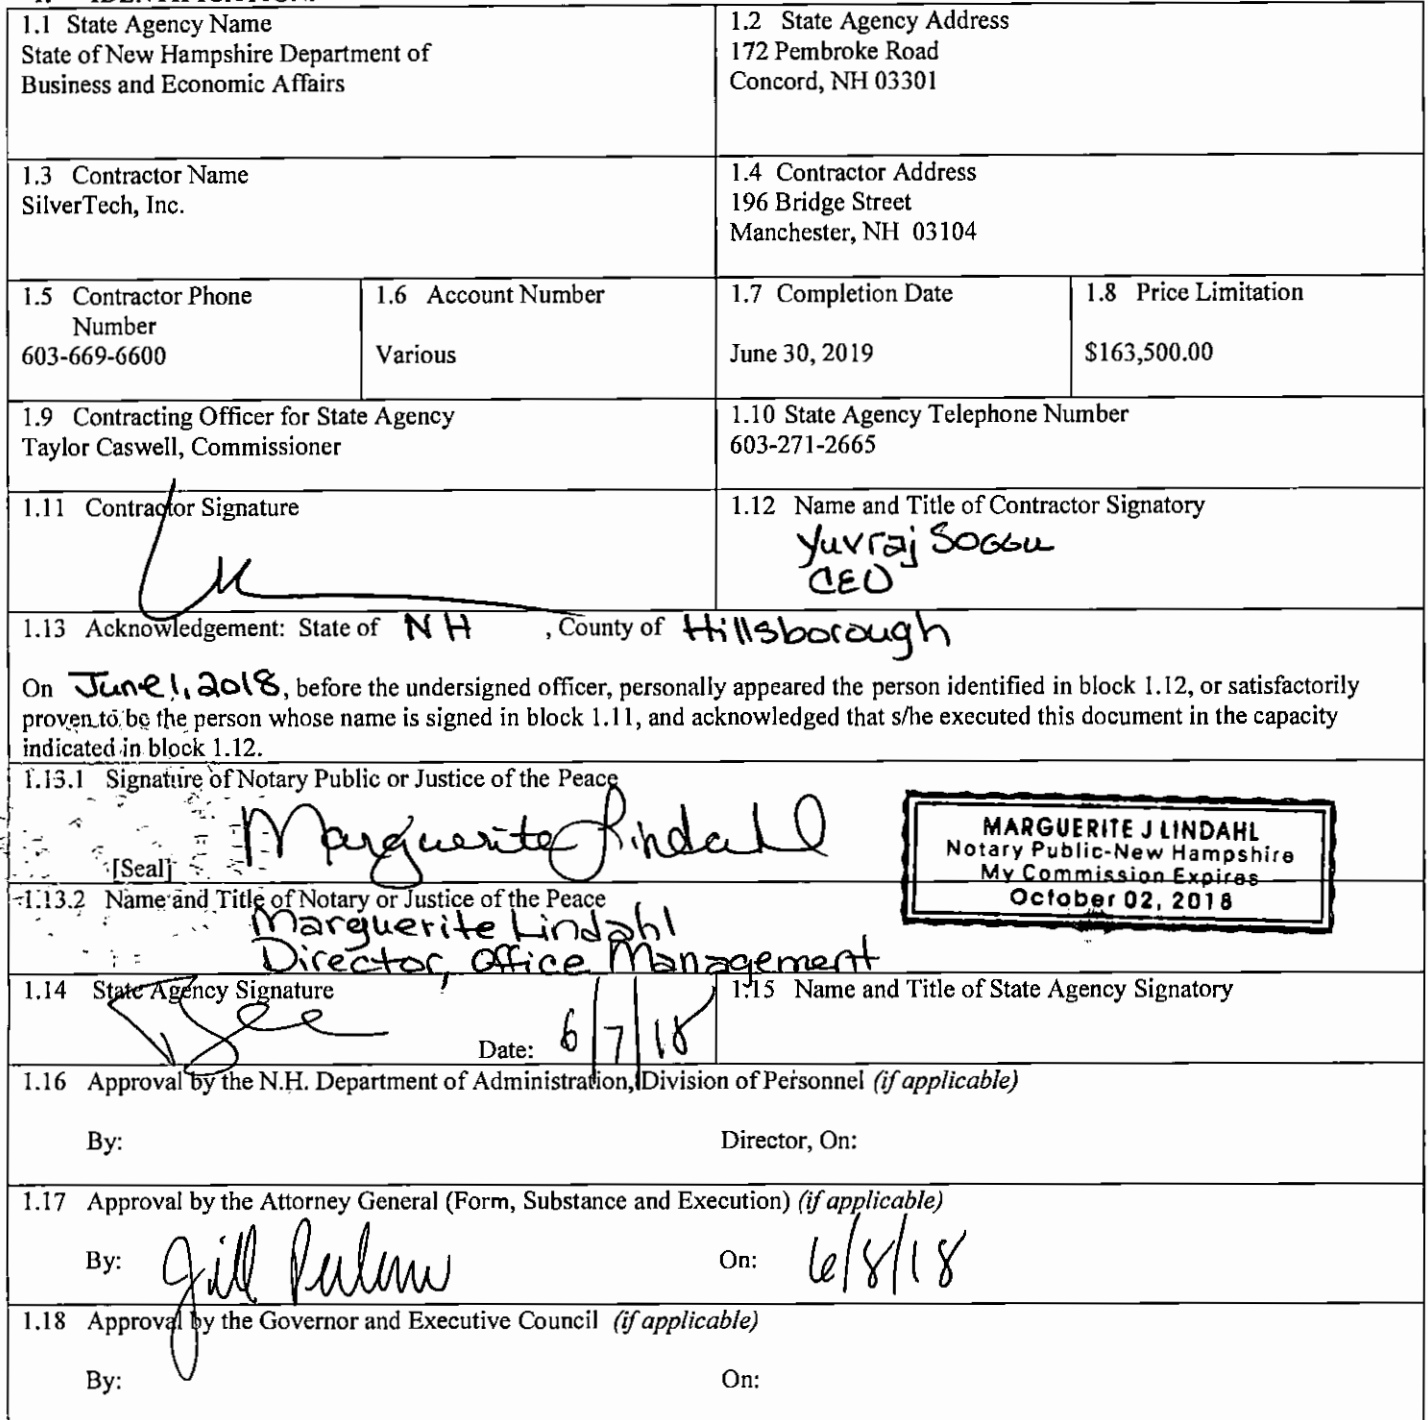 1.1 State Agency Name
State of New Hampshire Department of
Business and Economic Affairs
1.2 State Agency Address
172 Pembroke Road
Concord, NH 03301
1.3 Contractor Name
SilverTech, Inc.
1.4 Contractor Address
196 Bridge Street
Manchester, NH 03104
1.5 Contractor Phone
Number
603-669-6600
1.6 Account Number
Various
1.7 Completion Date
June 30, 2019
1.8 Price Limitation
$163,500.00
1.9 Contracting Officer for State Agency
Taylor Caswell, Commissioner
1.10 State Agency Telephone Number
603-271-2665
1.11 Contractor Signature
1.12 Name and Title of Contractor Signatory
Yuvraj
CEO
1.13 Acknowledgement: State of NH , County of Hillsborough
On June 1, 2018, before the undersigned officer, personally appeared the person identified in block 1.12, or satisfactorily
proven to be the person whose name is signed in block 1.11, and acknowledged that s/he executed this document in the capacity
indicated in block 1.12.
1.13.1 Signature of Notary Public or Justice of the Peace
Marguerite Lindahl
[Seal]
MARGUERITE J LINDAHL
Notary Public-New Hampshire
My Commission Expires
October 02, 2018
1.13.2 Name and Title of Notary or Justice of the Peace
Marguerite Lindahl
Director, Office Management
1.14 State Agency Signature
Date: 6/7/18
1.15 Name and Title of State Agency Signatory
1.16 Approval by the N.H. Department of Administration, Division of Personnel (if applicable)
By: Director, On:
1.17 Approval by the Attorney General (Form, Substance and Execution) (if applicable)
By: Jill On: 6/8/18
1.18 Approval by the Governor and Executive Council (if applicable)
By: On: